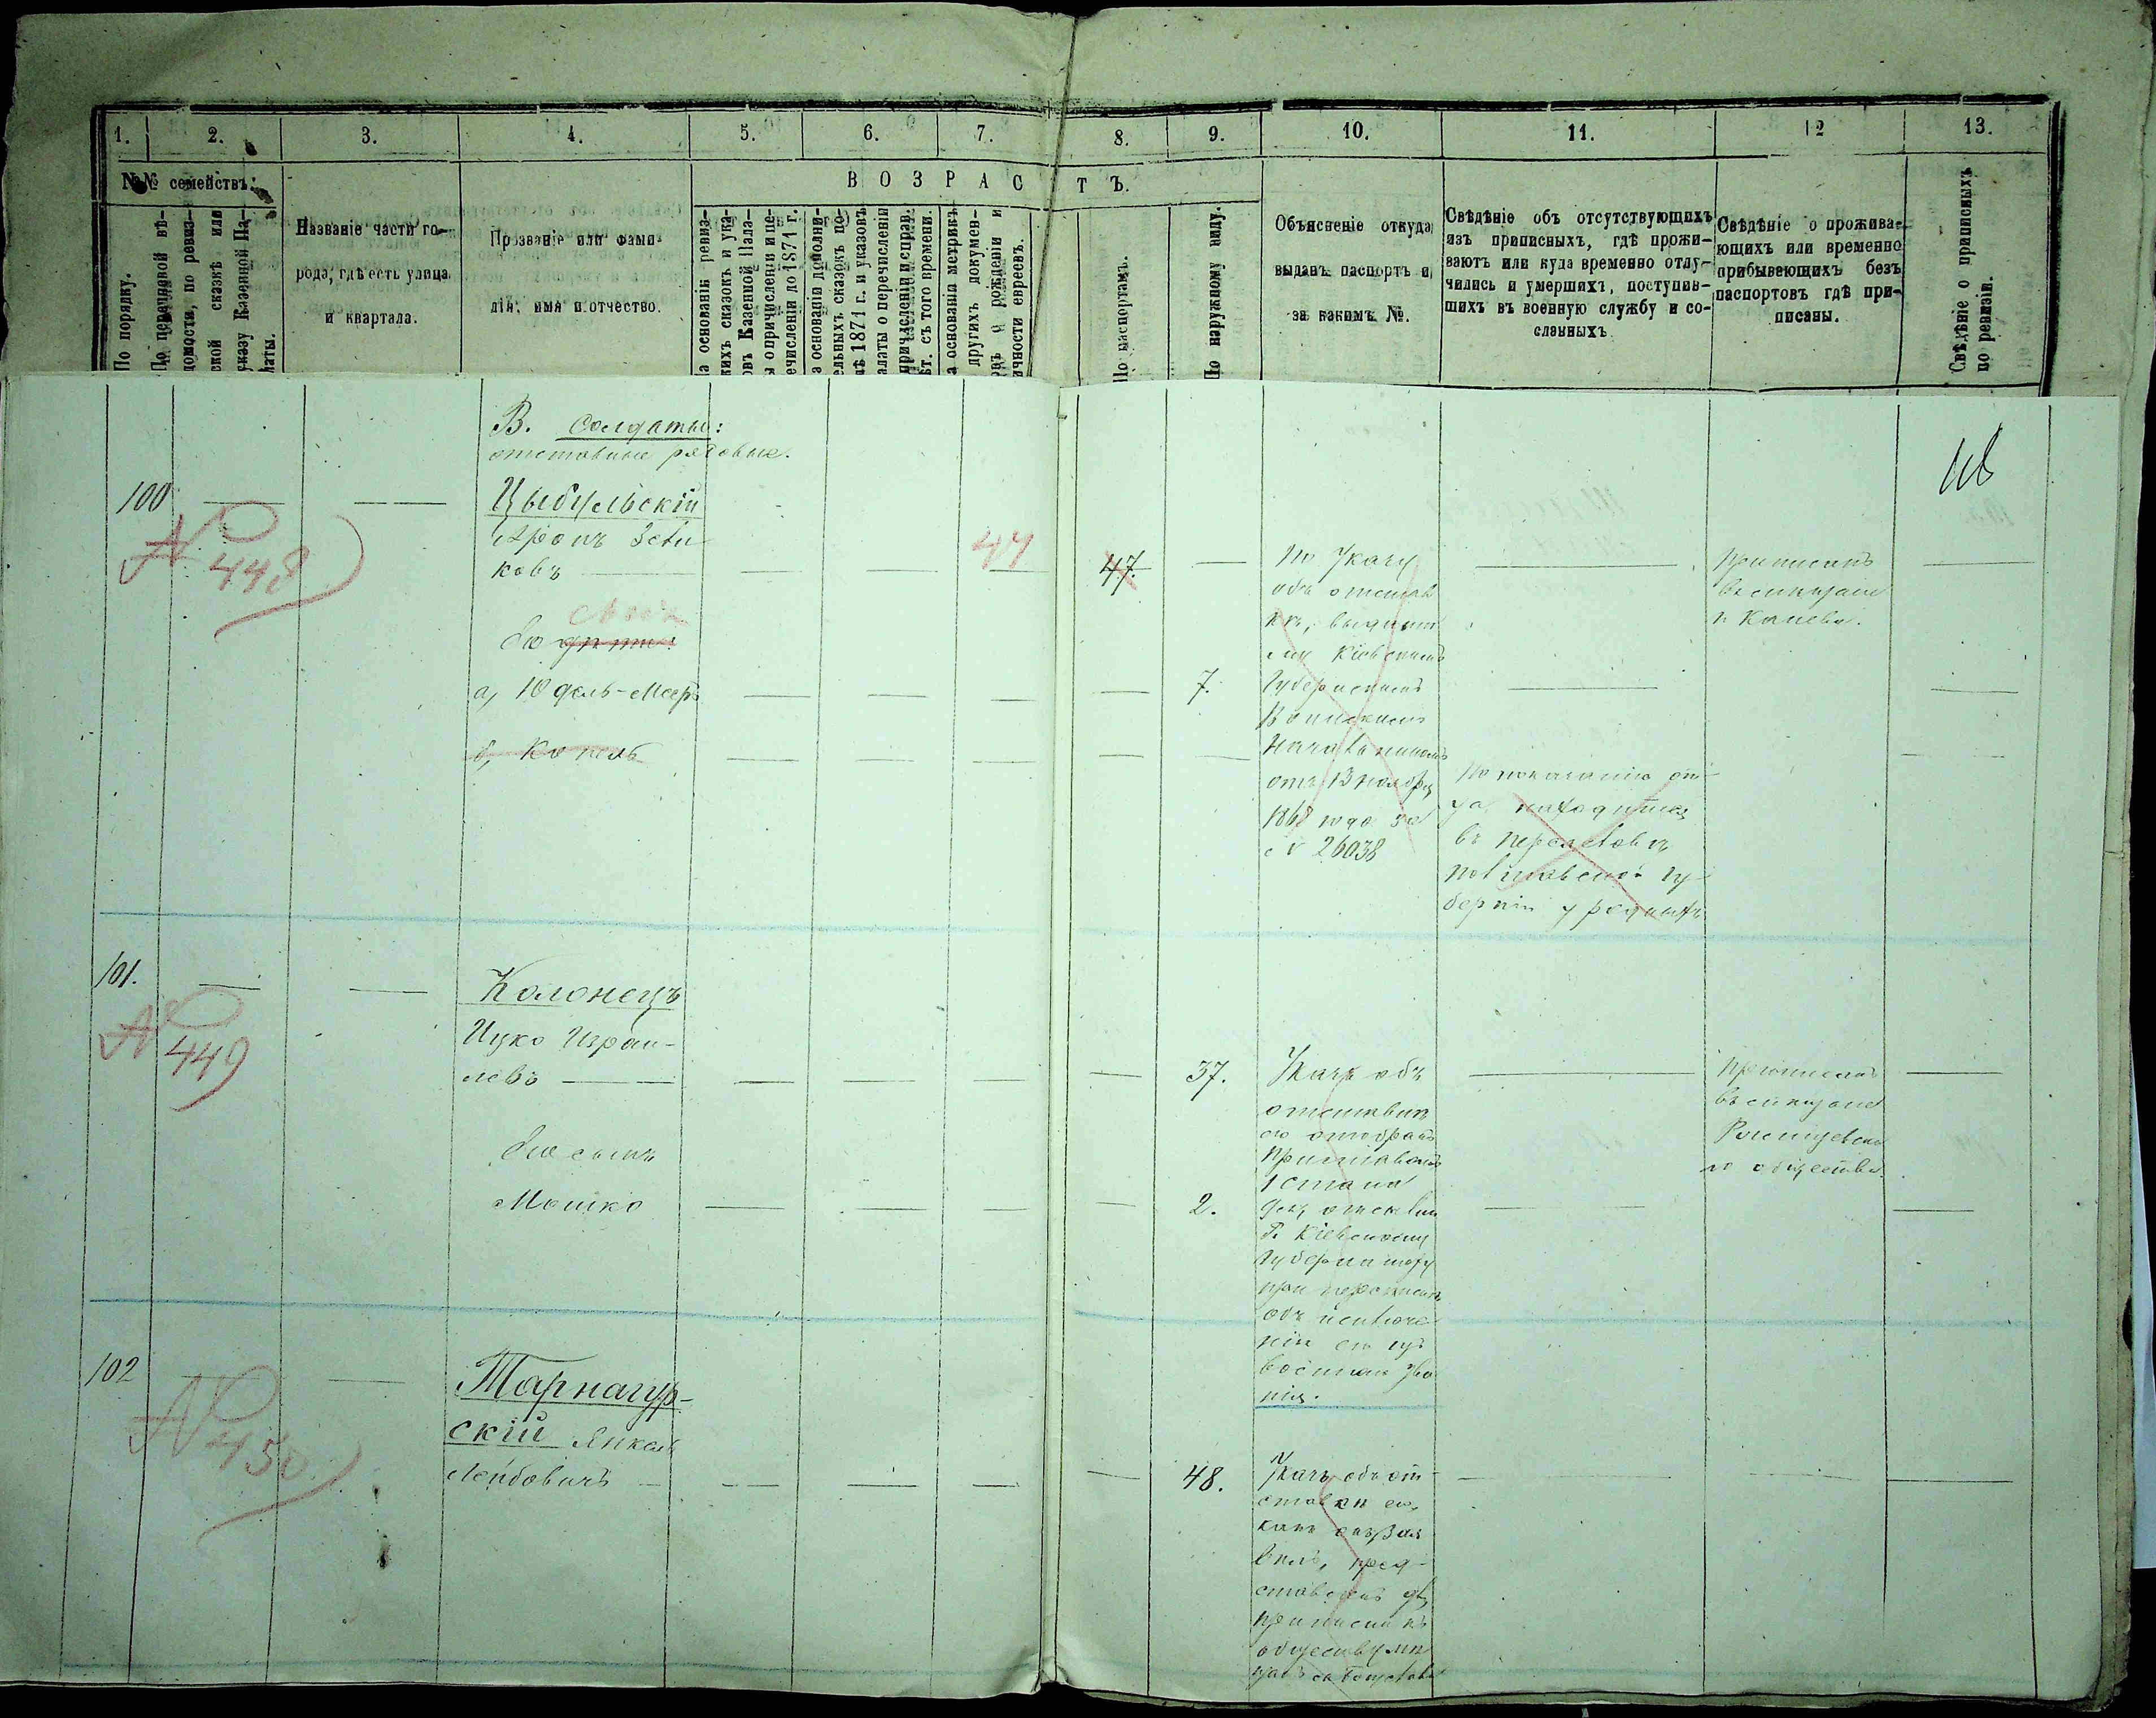 1.
2.
3.
4.
5.
6.
7.
8.
9.
10.
11.
12
13.
№№ семействъ:
По порядку.
По перечневой вѣ-
домости, по ревиз-
ской сказкѣ или
указу Казенной Па-
латы.
Названіе части го-
рода, гдѣ есть улица
и квартала.
Прозваніе или фами-
лія, имя и отчество.
ВОЗРАСТЪ.
а основаніи ревиз-
кихъ сказокъ и ука-
овъ Казенной Пала-
ы о причисленіи и пе-
ечисленіи до 1871 г.
а основаніи дополни-
ельныхъ сказокъ по-
лѣ 1871 г. и указовъ
алаты о перечисленіи
причисленіи и справ.
ѣт. съ того времени.
а основаніи метрикъ
другихъ докумен-
овъ о рожденіи и
ичности евреевъ.
По паспортамъ.
По наружному виду.
Объясненіе откуда
выданъ паспортъ и
за какимъ №.
Свѣдѣніе объ отсутствующихъ
изъ приписныхъ, гдѣ прожи-
ваютъ или куда временно отлу-
чились и умершихъ, поступив-
шихъ въ военную службу и со-
сланныхъ
Свѣдѣніе о прожива-
ющихъ или временно
прибывающихъ безъ
паспортовъ гдѣ при-
писаны.
Свѣдѣніе о приписныхъ
по ревизіи.
В. Солдаты:
отставные рядовые.
100
№ 448
Цыбульскій
Аронъ Зели-
ковъ
47
47.
По Указу
объ отстав
кѣ, выданно
му Кіевскимъ
Губернскимъ
Воинскимъ
Начальникомъ
отъ 13 Ноября
1868 года за
№ 26038
Приписанъ
въ мѣщане
г. Канева.
Его дѣти:
сынъ
а, Юдель-Мееръ
7.
б, Копель
По показанію от-
ца находится
въ Переяславѣ
Полтавской гу-
берніи у родныхъ
101.
№ 449
Колонецъ
Ицко Израи-
левъ
37.
Указъ объ
отставкѣ
его отобранъ
Приставомъ
1 стана
для отсылки
Г. Кіевскому
Губернатору
при перепискѣ
объ исключе
ніи его изъ
военнаго зва
нія.
Приписанъ
въ мѣщане
Его сынъ
Мошко
2.
102
№ 450
Тарнагур-
скій Янкель
Лейбовичъ
48.
Указъ объ от-
ставкѣ его,
какъ онъ зая
вилъ, пред-
ставленъ для
приписки къ
обществу мѣ
щанъ